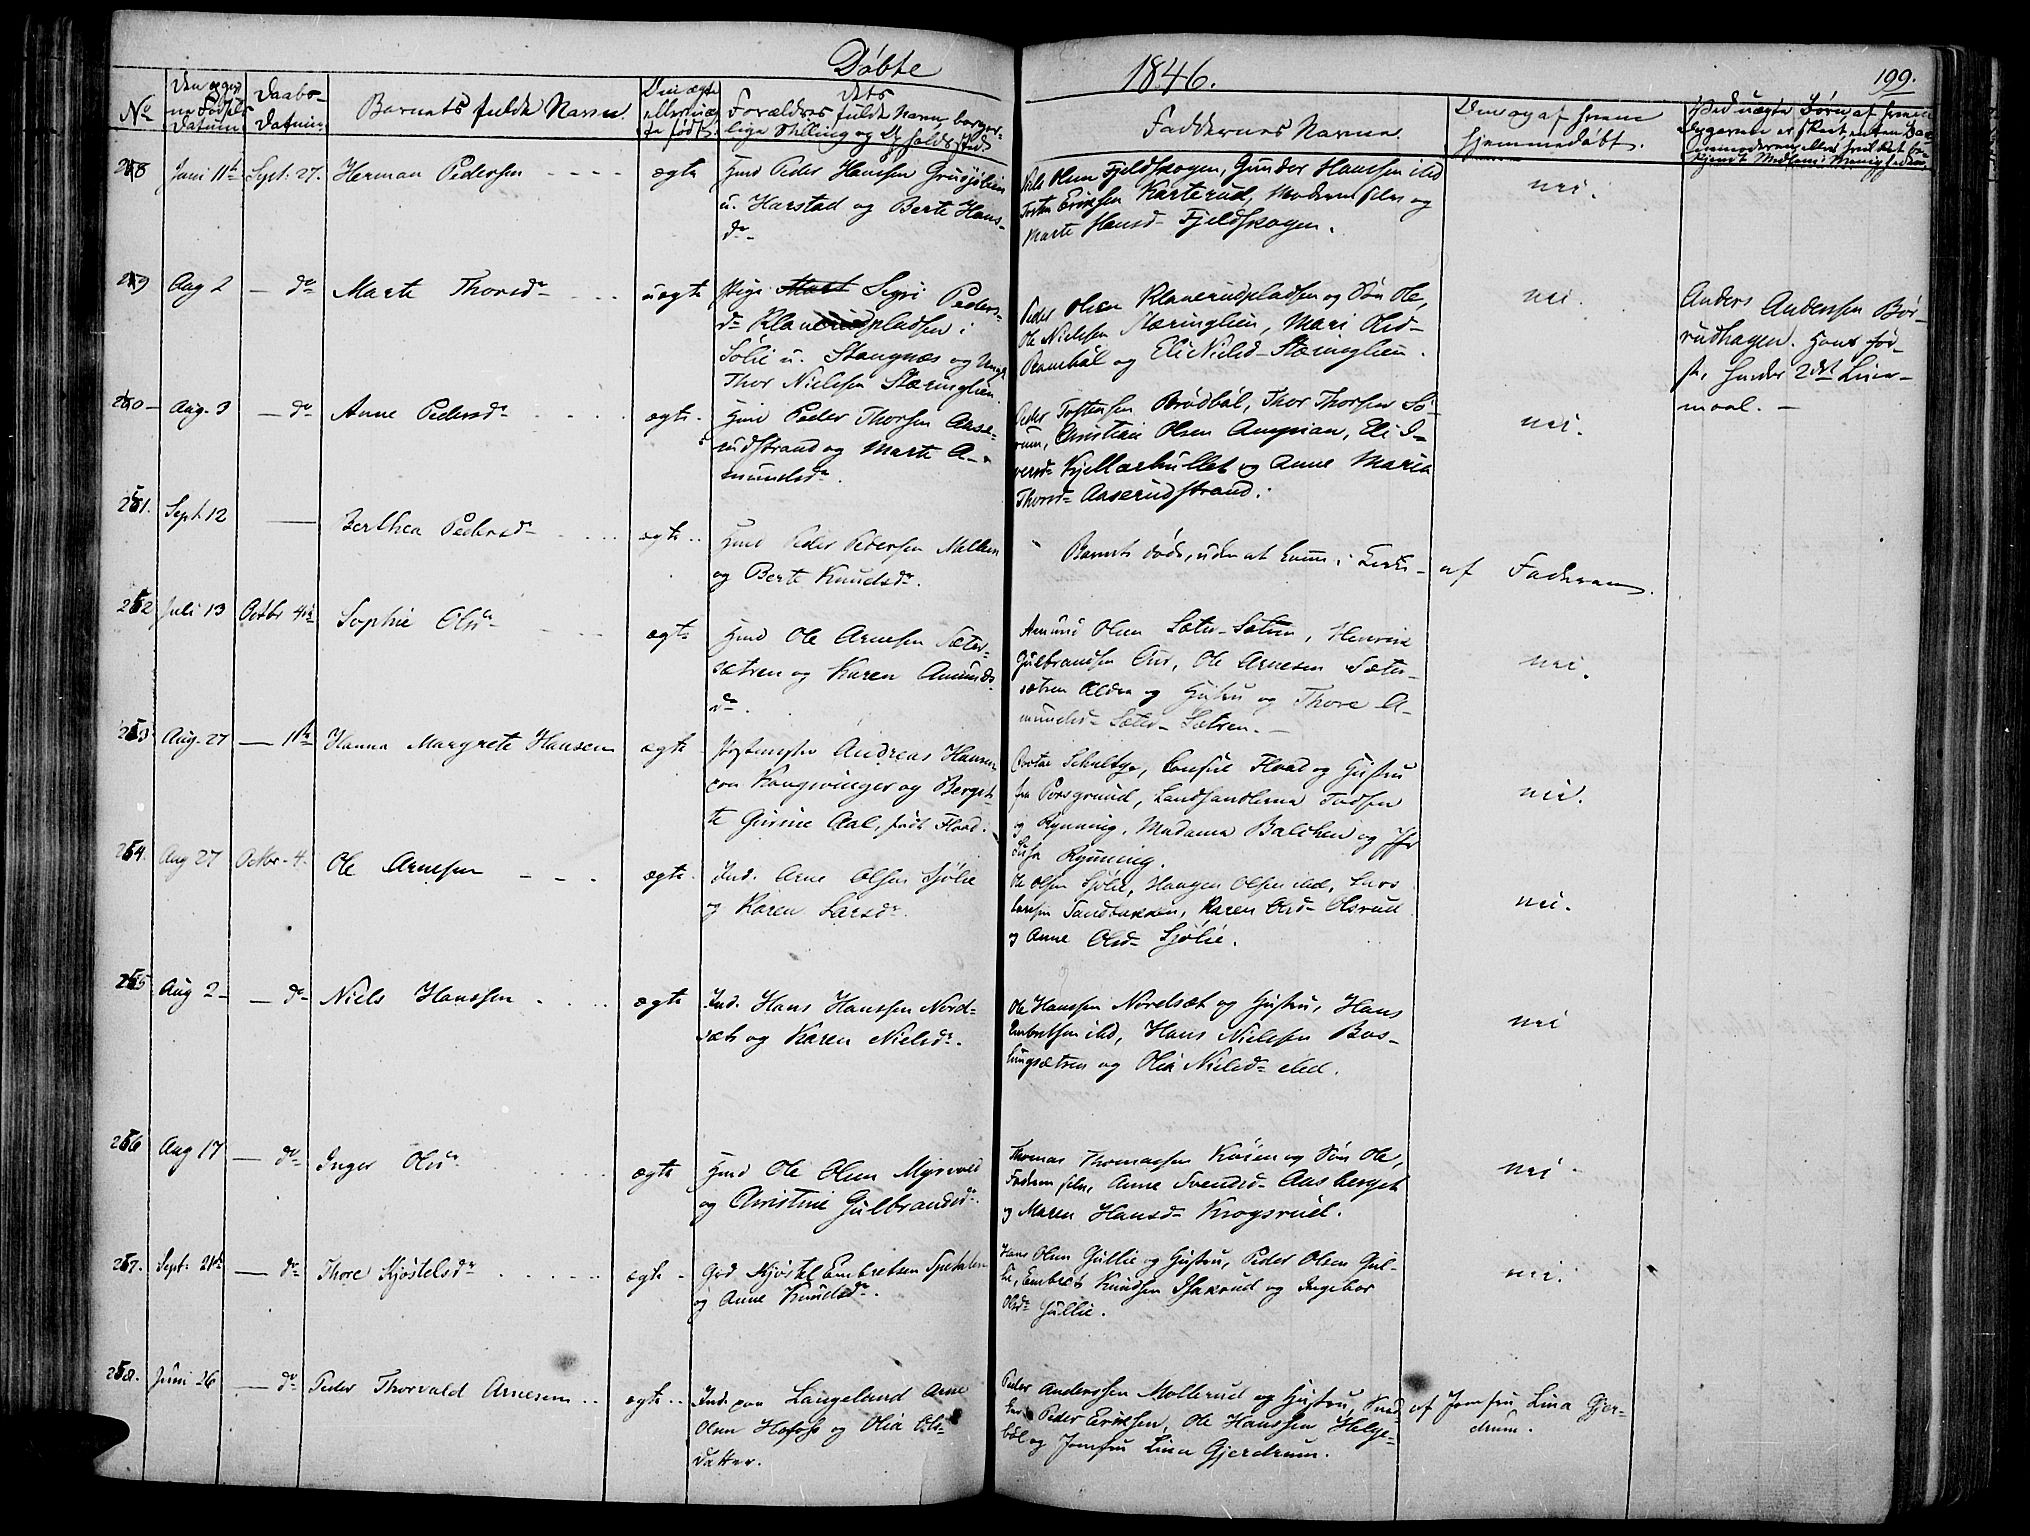 Døbte 1846. 199.
No
Daabs-
Datum
Barnets fulde Navn.
Forældres fulde Navn, borger-
lige Stilling og Opholdssted
Faddernes Navne.
Den og af hvem
hjemmedøbt.
248 Juni 11te Sept. 27. Herman Pedersen ægte Hmd Peder Hanssen
u. Harstad og Berte Hans-
dr
Ole Olsen Fjeldskogen, Gunder Hanssen ibd
Eriksen Karterud, Moderen selv og
Marte Hansd- Fjeldskogen.
nei.
249 Aug 2 — do Marte Thorsdr uægte Pige Sigri Peders-
dr Klanerudpladsen i
Sølie u. Stangnæs og Ungk.
Thor Nielsen Stæringlien.
Peder Olsen Klanerudpladsen og Søn Ole,
Ole Nielsen Stæringlien, Mari Olsd-
Rambøl og Eli Nielsd- Stæringlien.
nei.
Anders Andersen Bør-
rudhagen. Hans før-
ste, hendes 2det Leier-
maal. —
250 Aug. 3 — do Anne Pedersdr ægte Hmd Peder Thorsen Aase-
rudstrand og Marte A-
mundsdr.
Peder Tostensen Brødbøl, Thor Thorsen Sö-
rum, Christian Olsen, Eli I-
versd- Kjellerhullet og Anne Maria
Thorsd- Aaserudstrand.
nei.
251. Sept 12 — Berthea Pedersdr ægte Hmd Peder Pedersen Mellem
og Berte Knudsdr.
Barnet døde, uden at komme i Kirke - af Faderen
252 Juli 13 Octbr 4de Sophie Olsdr ægte Hmd Ole Arnesen Sæter-
sætren og Karen Amunds-
dr.
Amund Olsen Sæter-Sætren, Henrik
Gulbrandsen Aur, Ole Arnesen Sæter-
sætren Eldre og Hustru og Thore A-
mundsd- Sæter-Sætren. —
nei.
253 Aug. 27 — 11te Hanna Margrete Hansen ægte Postmester Andreas Hansen
paa Kongsvinger og Berget-
te Gurine Aal, født Floed.
Doctor Schultze, Consul Floed og Hustru
fra Porsgrund, Landhandlerne Todsen
og Rynning, Madame Balchen og Jfr
Lisa Rynning.
nei.
254. Aug 27 Octbr. 4. Ole Arnesen ægte Ind. Arne Olsen Sjølie
og Karen Larsdr.
Ole Olsen Sjølie, Haagen Olsen ibd, Lars
Larsen Sandbakken, Karen Olsd- Olsrud
og Anne Olsd- Sjølie.
nei.
255 Aug 2 — do Niels Hanssen ægte Ind. Hans Hanssen Nord-
sæt og Karen Nielsdr.
Ole Hanssen Nordsæt og Hustru, Hans
Embretsen ibd, Hans Nielsen Bos-
lungsætren og Olia Nielsd- ibd.
nei
256 Aug 17 — do Inger Olsdr ægte Hmd Ole Olsen Myrvold
og Christine Gulbrandsdr.
Thomas Thomassen Koien og Søn Ole,
Faderen selv, Anne Svendsd- Aasberget
og Maren Hansd- Krogsrud.
nei
257. Sept. 21de — do Thore Kjøstelsdr ægte Grd Kjøstel Embretsen Spetalen
og Anne Knudsdr.
Hans Olsen Gullie og Hustru, Peder Olsen Gul-
lie, Embret Knudsen Skakrud og Ingebor
Olsdr Gullie.
nei.
258. Juni 26 — do Peder Thorvald Arnesen ægte Ind. paa Langeland Arne
Olsen Hofoss og Olia Ols-
datter.
Peder Anderssen Mollerud og Hustru,
Peder Eriksen, Ole Hanssen Helge-
bøl og Jomfru Lina Gjerdrum.
af Jomfru Lina Gjer-
drum.